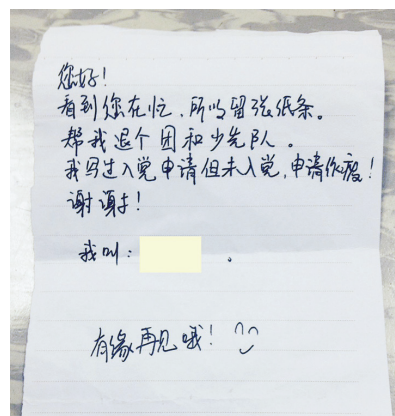 您好!
看到您在忙,所以留张纸条。
帮我退个团和少先队。
我写过入党申请但未入党,申请作废!
谢谢!
我叫: 。
有缘再见哦!